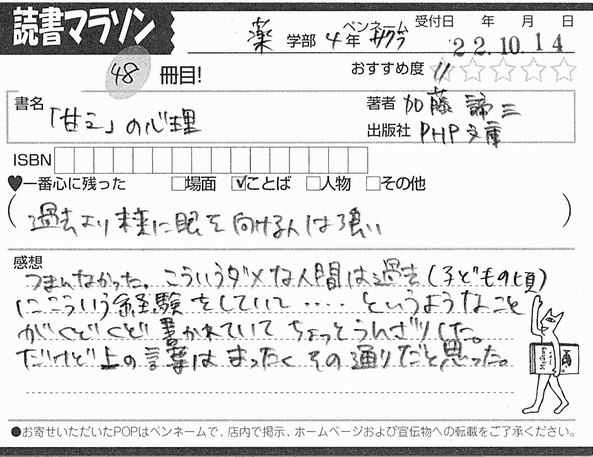 読書マラソン
薬 学部 4年 ペンネーム サクラ 受付日 年 月 日 22.10.14
48 冊目! おすすめ度
書名 「甘え」の心理 著者 加藤 諦三
出版社 PHP文庫
ISBN
♥一番心に残った □場面 ☑ことば □人物 □その他
(過去より未来に眼を向ける人は強い)
感想
つまんなかった。こういうダメな人間は過去(子どもの頃)
にこういう経験をしていて‥‥というようなこと
がくどくど書かれていてちょっとうんざりした。
だけど上の言葉はまったくその通りだと思った。
●お寄せいただいたPOPはペンネームで、店内で掲示、ホームページおよび宣伝物への転載をご了承ください。